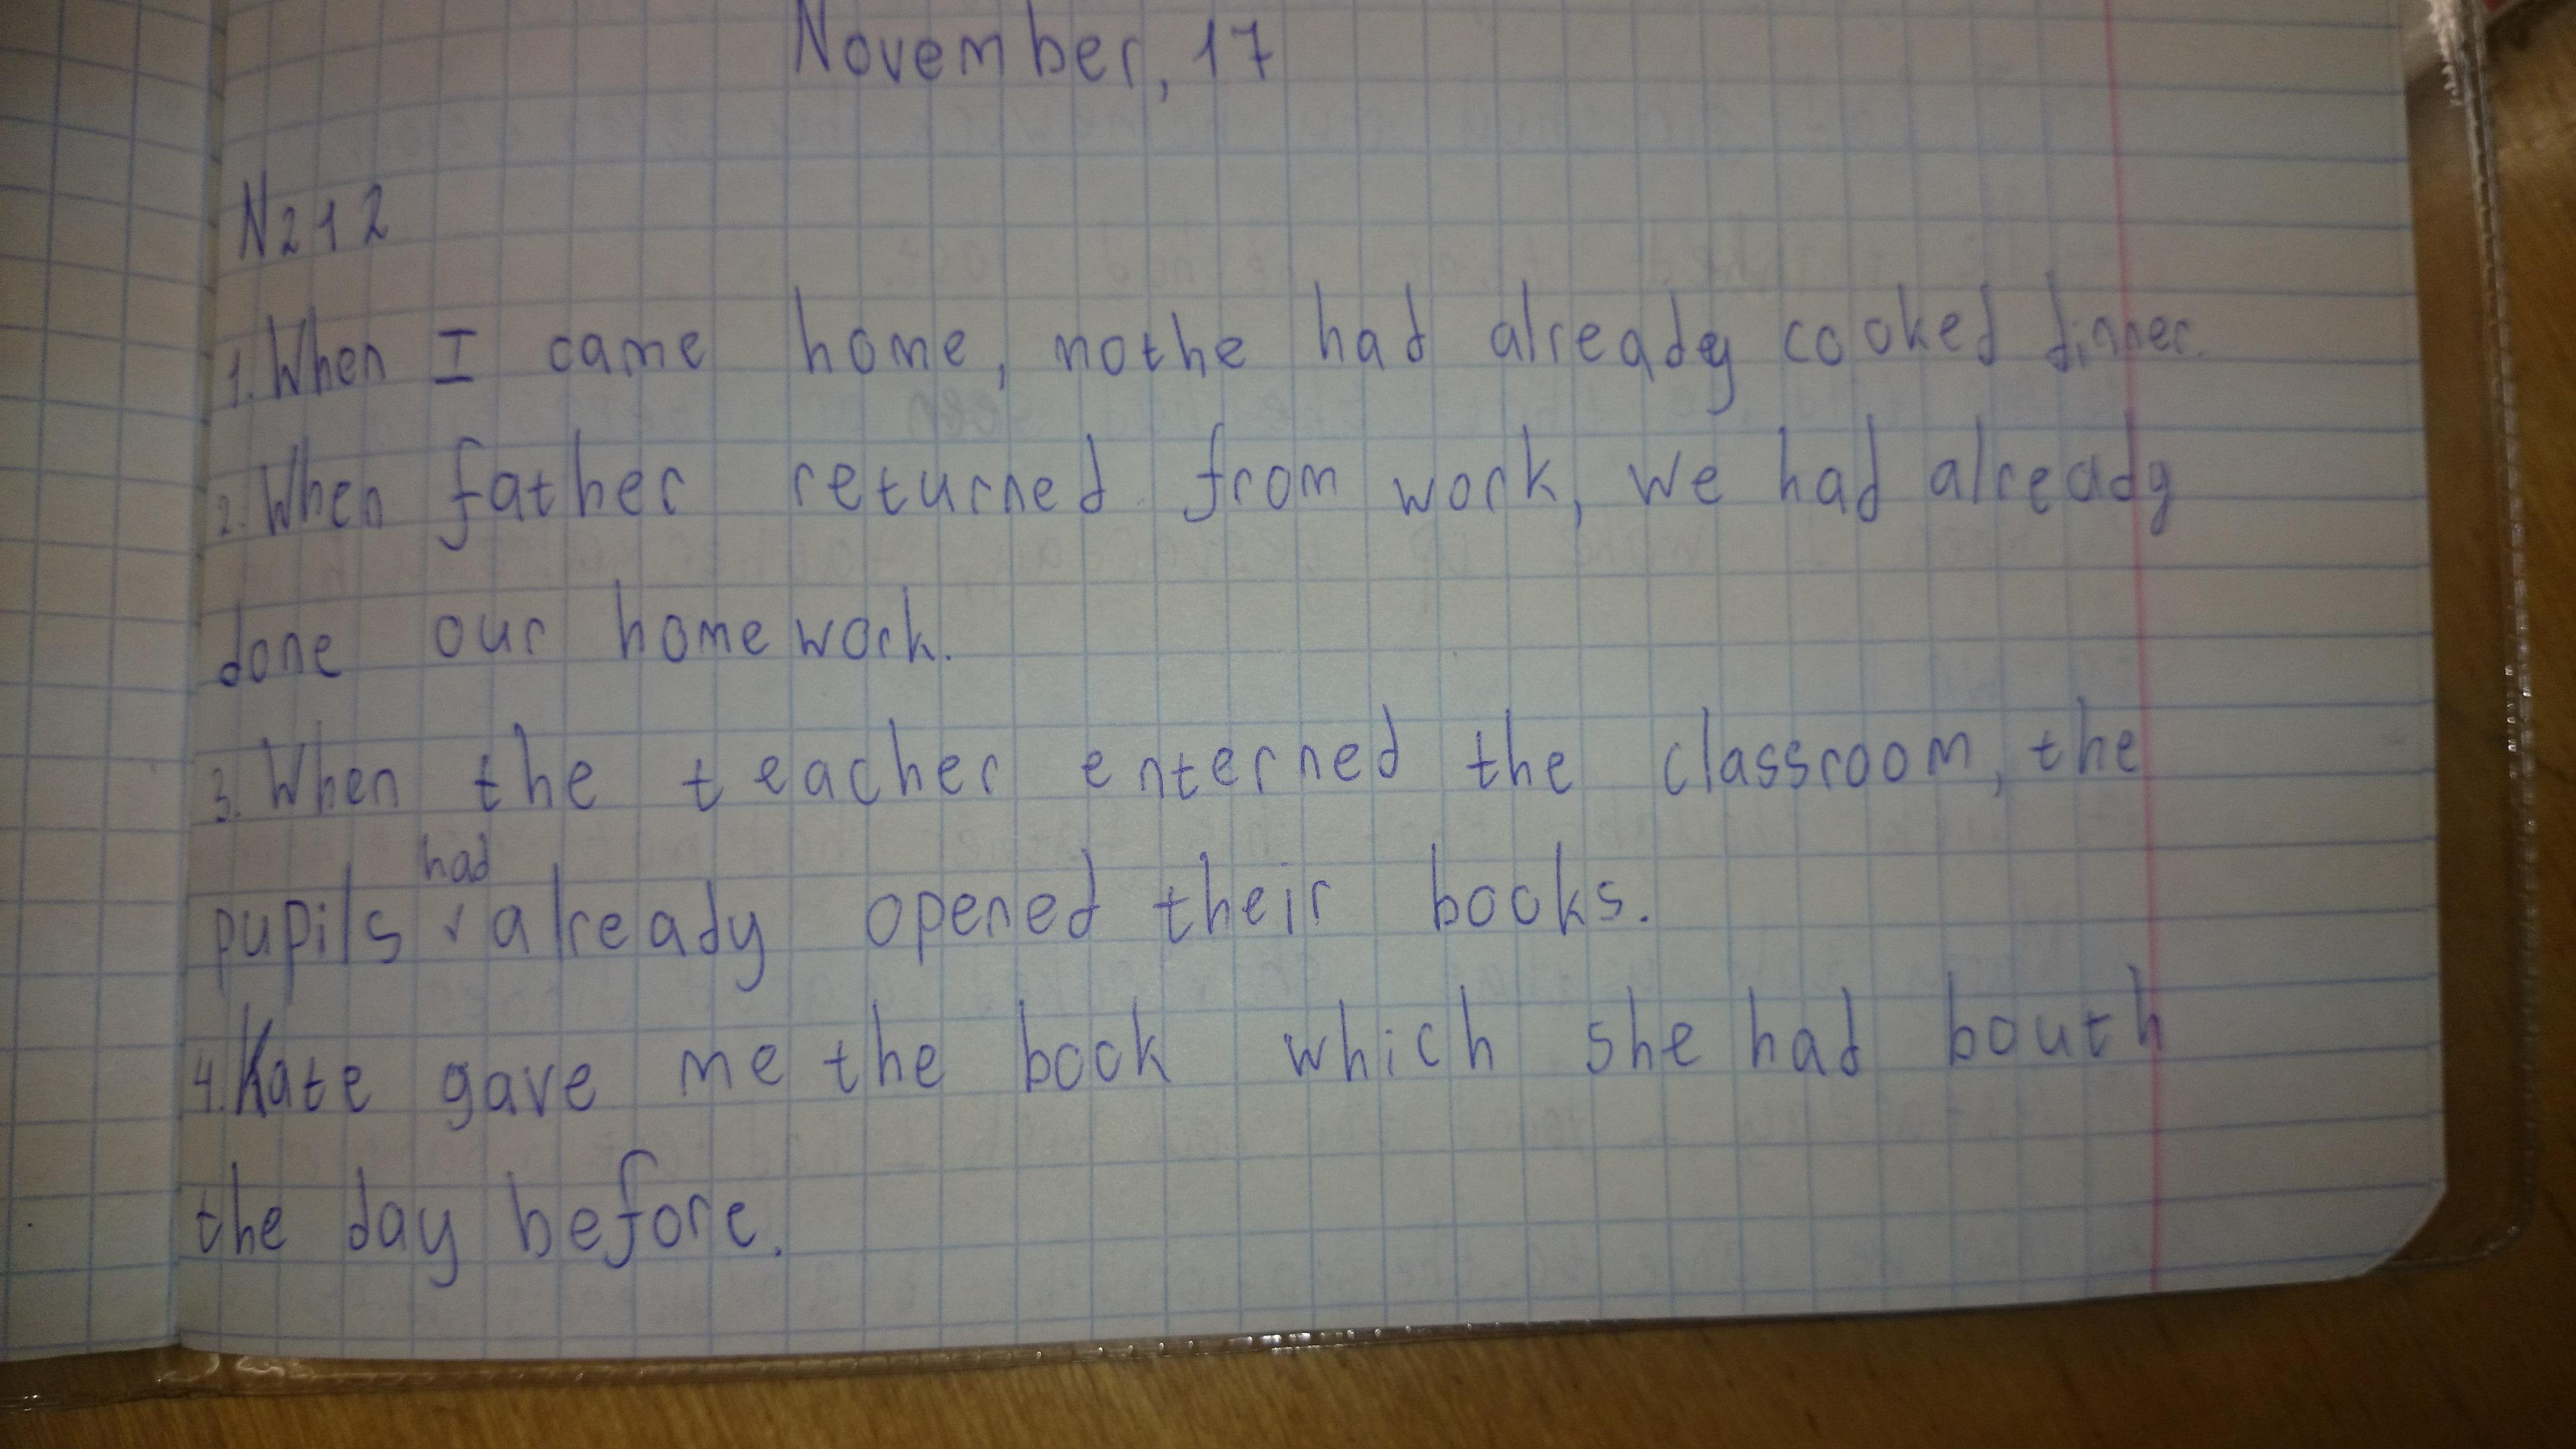 November, 17
N212
1. When I came home, nothe had already cooked dinner.
2. When father returned from work, we had already
done our homework.
3. When the teacher enterned the classroom, the
had
pupils v already opened their books.
4. Kate gave me the book which she had bouth
the day before.